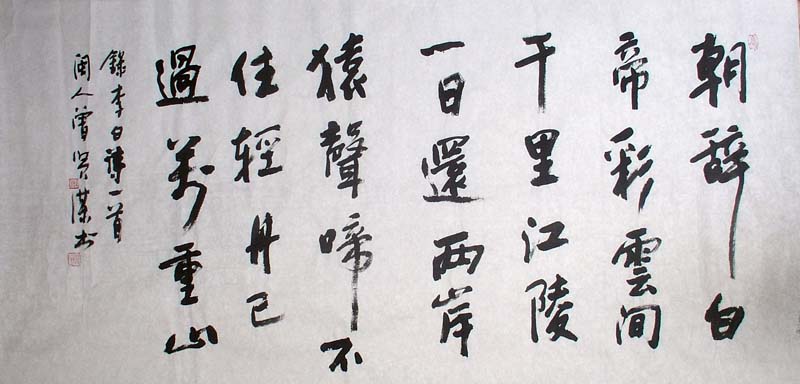 朝辞白
帝彩雲间
千里江陵
一日還两岸
猿聲啼不
住輕舟已
過萬重山
錄李白诗一首
闽人曾贤谋书